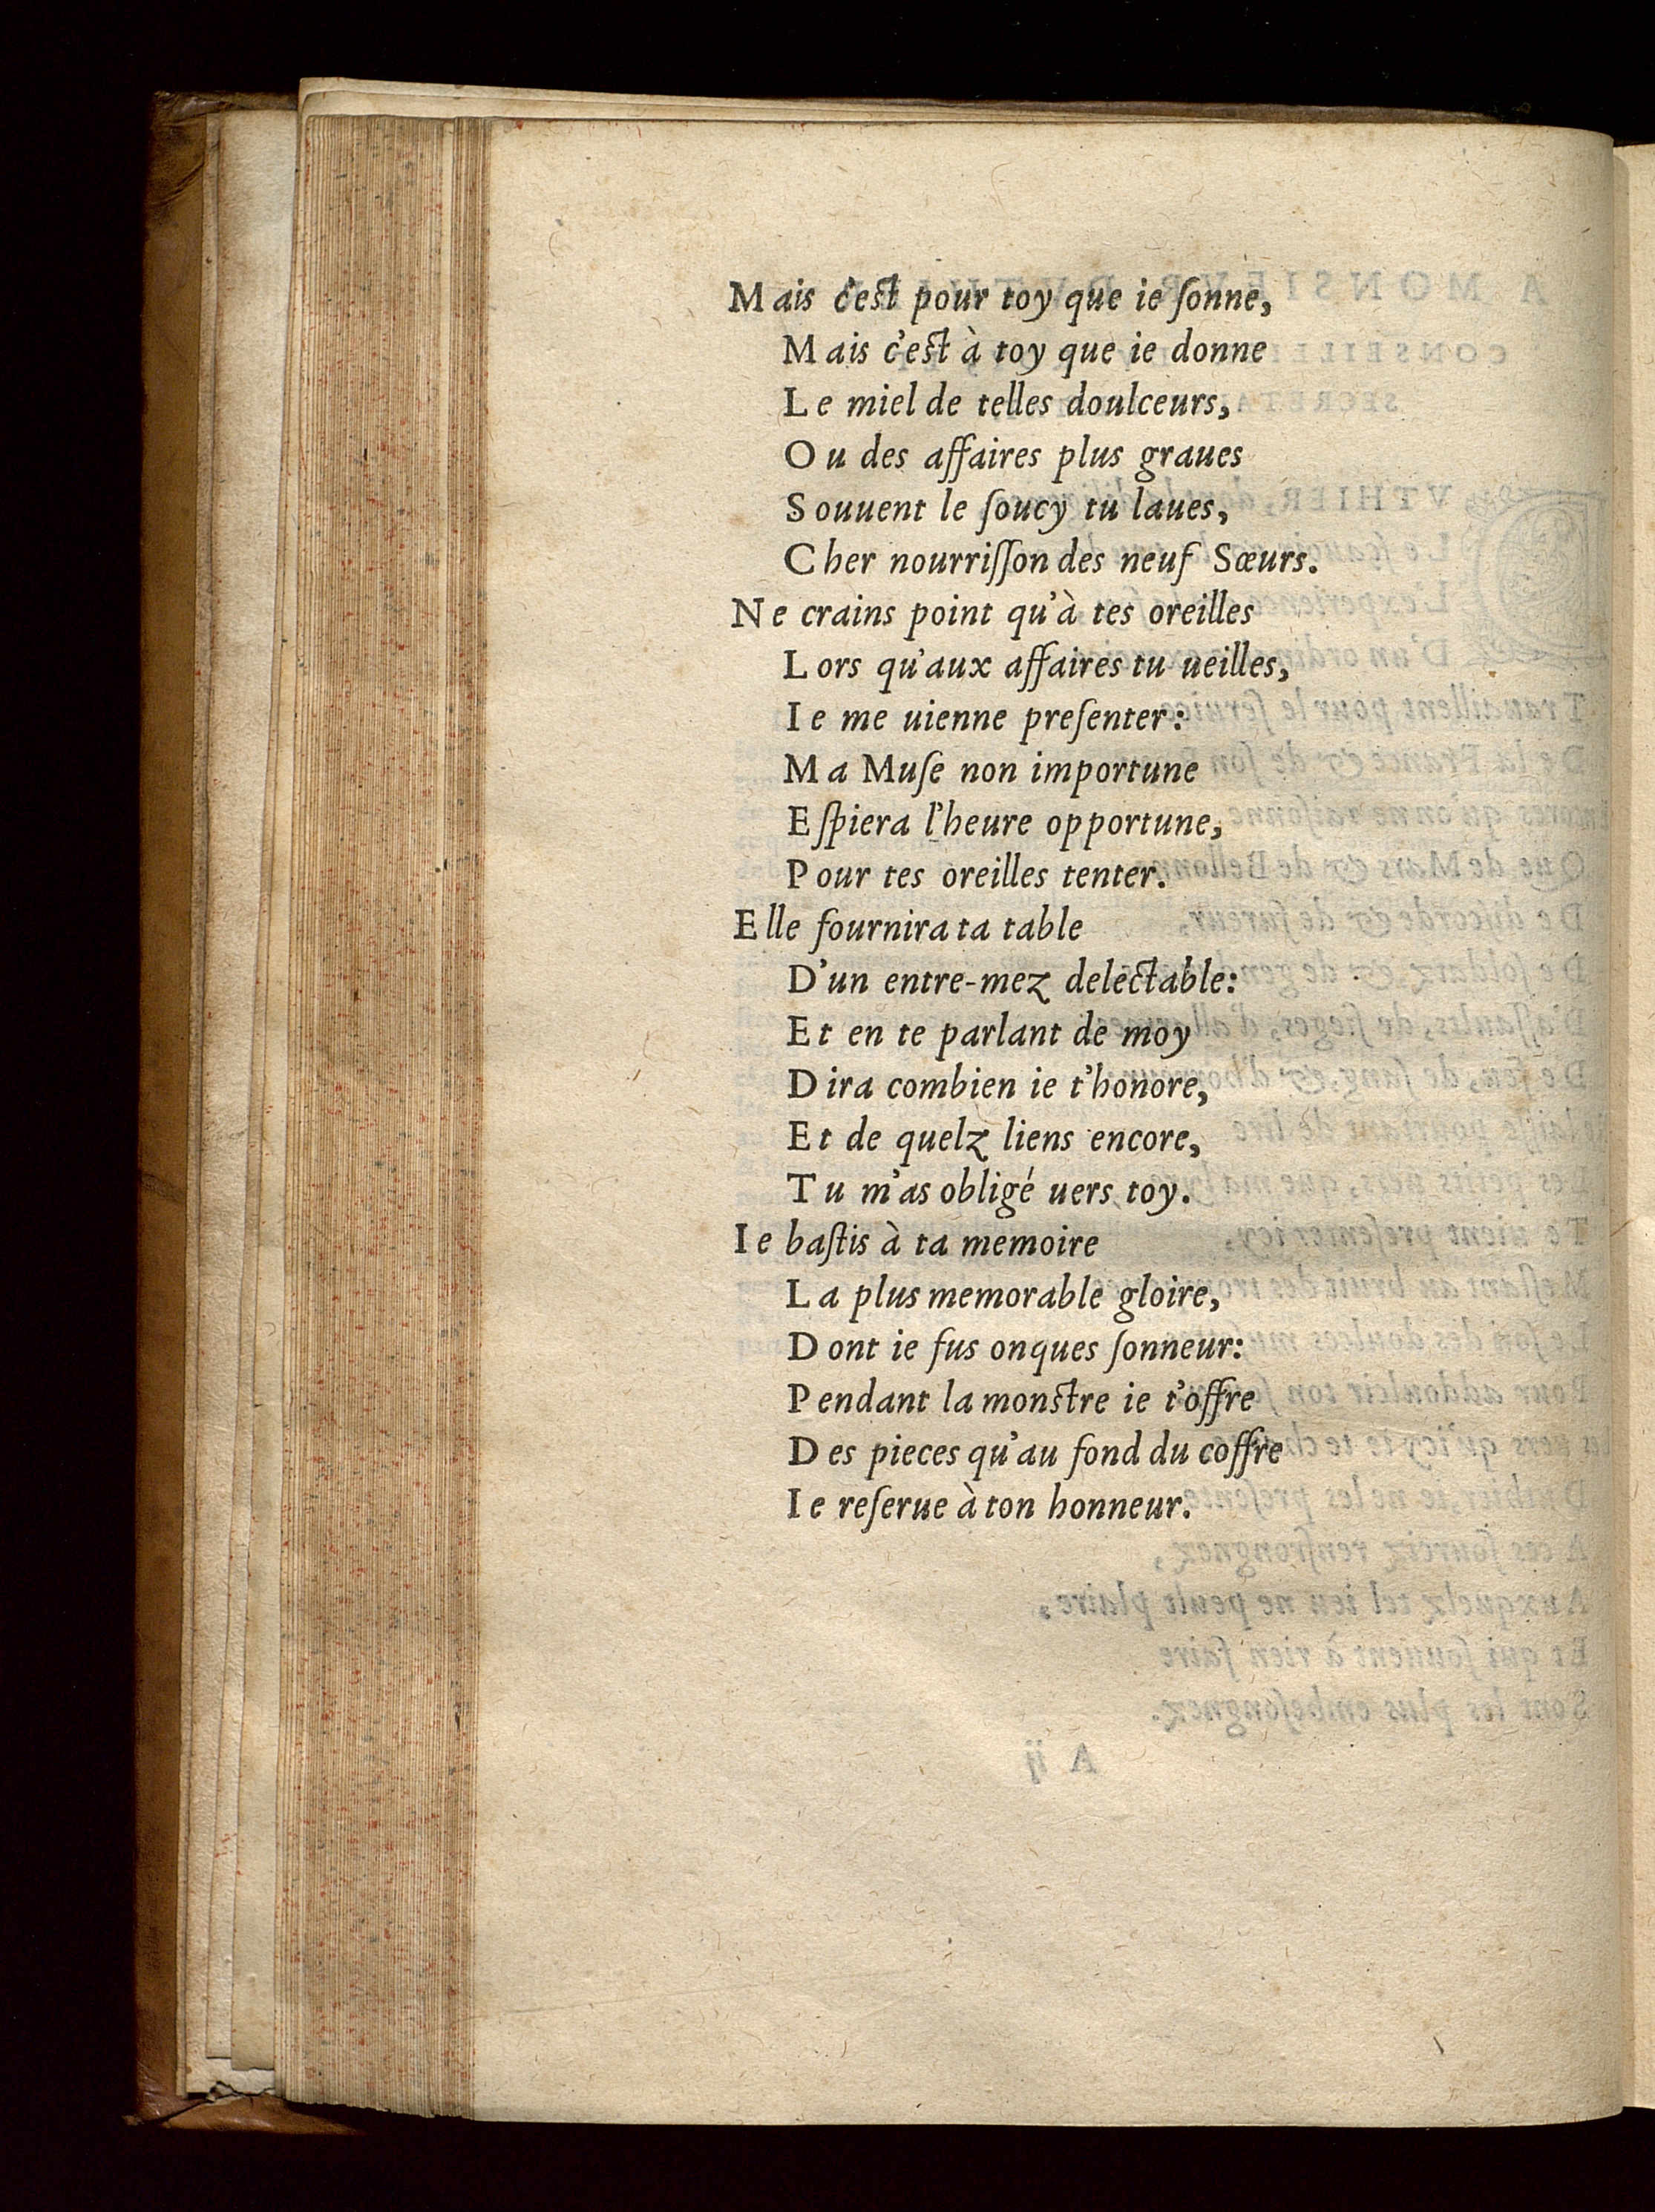 Mais c'est pour toy que ie ſonne,
Mais c'est à toy que ie donne
Le miel de telles doulceurs,
Ou des affaires plus graues
Souuent le ſoucy tu laues,
Cher nourriſſon des neuf Sœurs.
Ne crains point qu'à tes oreilles
Lors qu'aux affaires tu ueilles,
Ie me uienne preſenter:
Ma Muſe non importune
Eſpiera l'heure opportune,
Pour tes oreilles tenter.
Elle fournira ta table
D'un entre-mez delectable:
Et en te parlant de moy
Dira combien ie t'honore,
Et de quelz liens encore,
Tu m'as obligé uers toy.
Ie baſtis à ta memoire
La plus memorable gloire,
Dont ie fus onques ſonneur:
Pendant la monstre ie t'offre
Des pieces qu'au fond du coffre
Ie reſerue à ton honneur.